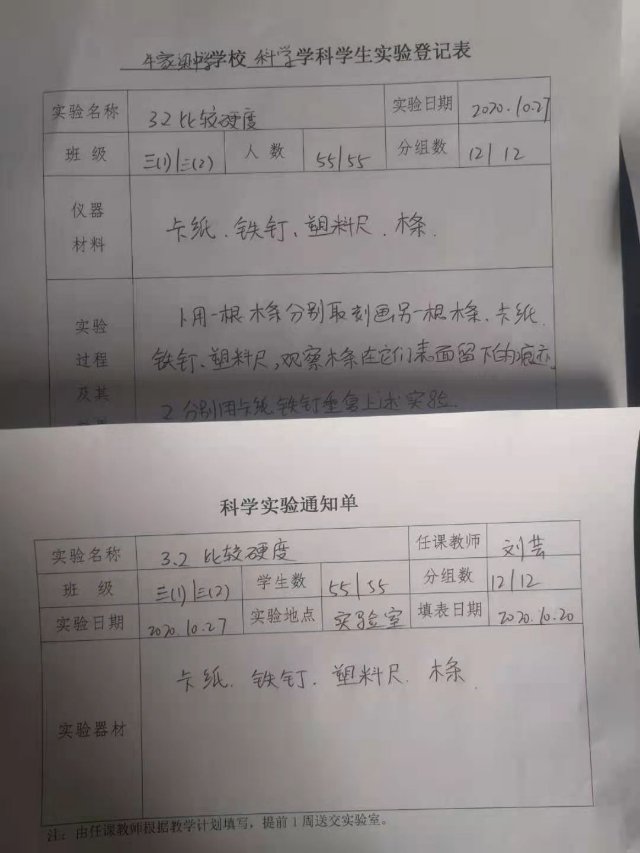 学校 科学学科学生实验登记表
实验名称 3.2 比较硬度 实验日期 2020.10.27
班 级 三(1)/三(2) 人 数 55/55 分组数 12/12
仪器
材料
卡纸、铁钉、塑料尺、木条.
实验
过程
及其
1.用一根木条分别取刻画另一根木条、卡纸、
铁钉、塑料尺,观察木条在它们表面留下的痕迹.
2.分别用卡纸、铁钉重复上述实验.
科学实验通知单
实验名称 3.2 比较硬度 任课教师 刘芸
班 级 三(1)/三(2) 学生数 55/55 分组数 12/12
实验日期 2020.10.27 实验地点 实验室 填表日期 2020.10.20
实验器材 卡纸、铁钉、塑料尺、木条.
注:由任课教师根据教学计划填写,提前1周送交实验室。